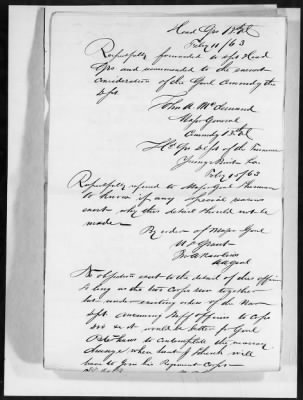 Head Qrs 13th
Feby 11/63
Respectfully forwarded to Head
Qrs and recommended to the
consideration of the Genl Commdg the
Dept.
John A McClernand
Major General
Commdg
Hd Qrs Dept of the Tennessee
Youngs Point La
Feby 63
Respectfully referred to Major Genl Sherman
to know if any special reasons
exist why this detail should not be
made
By order of Major Genl
U S Grant
Jno A Rawlins
AA Genl
No objection exist to the detail of this officer
so long as the two Corps are together
but under existing orders of the War
Dept concerning Staff officers to Corps
it would be better for Genl
to contemplate the necessary
change when I think will
have to join his Regiment Corps